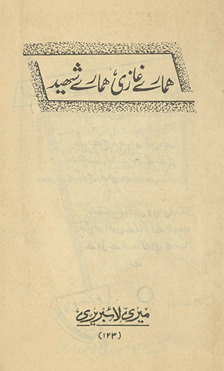 ہمارے غازی، ہمارے شہید
میری لائبریری
(۱۲۳)